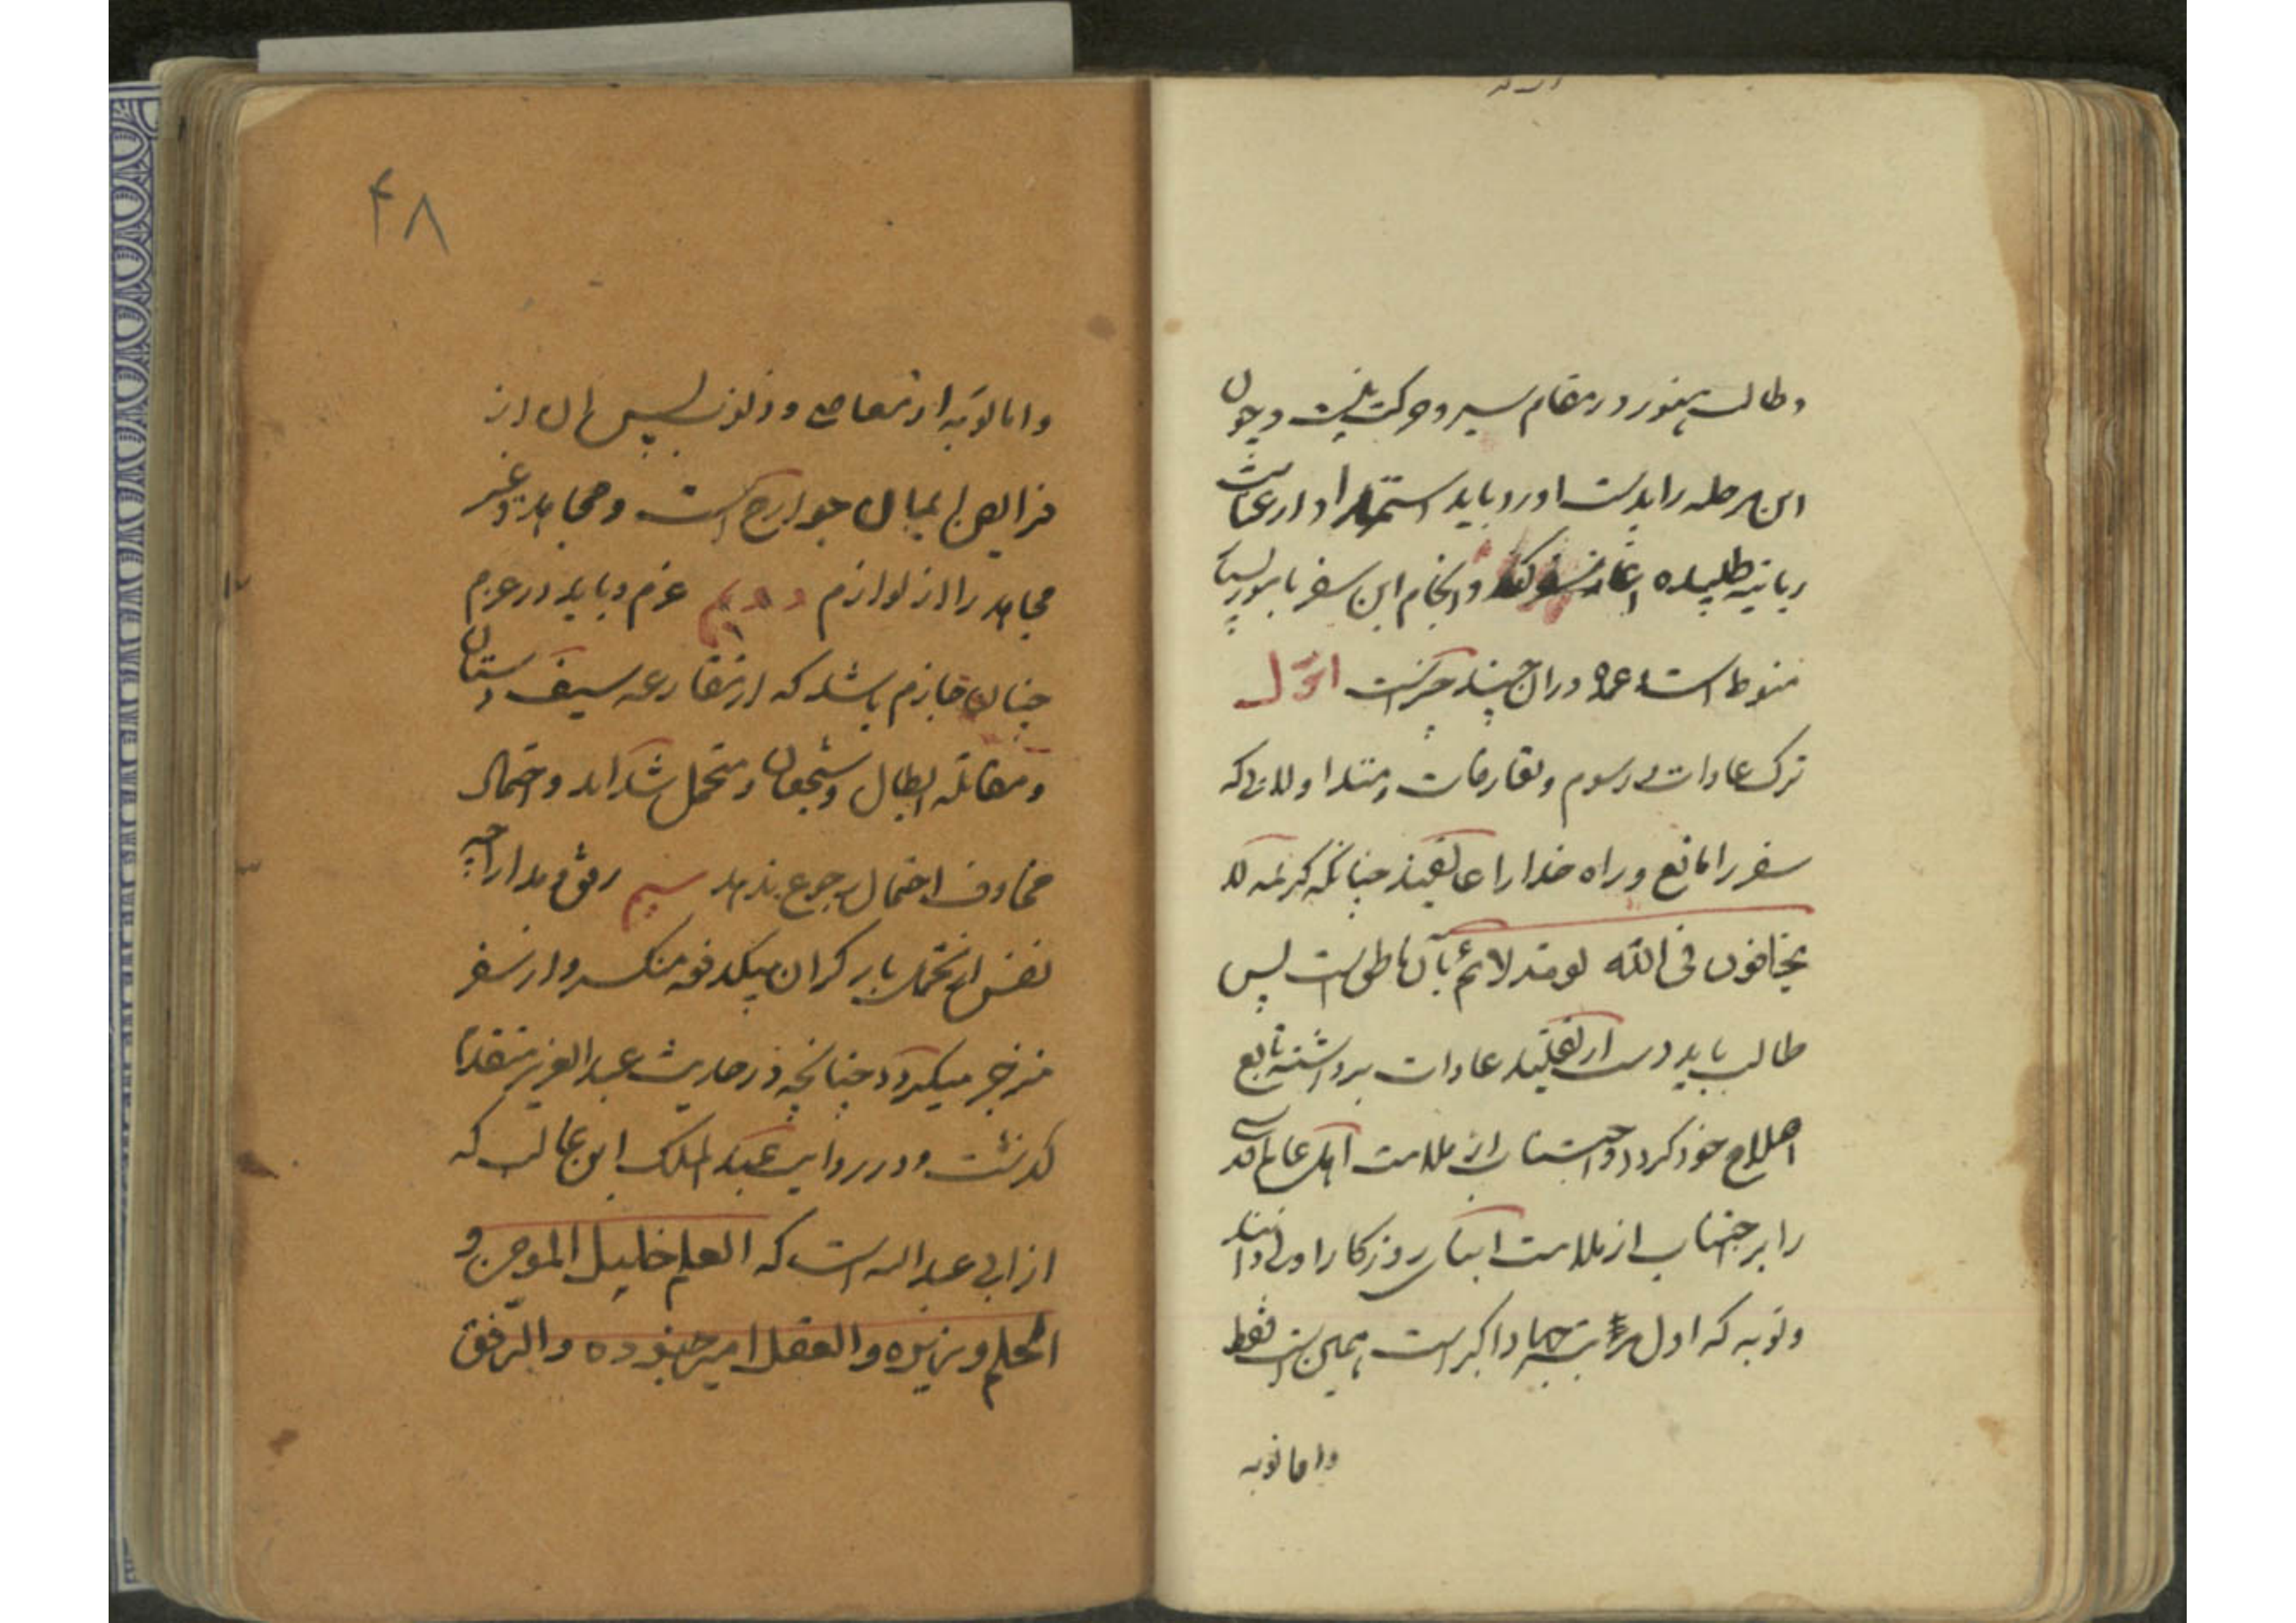 وطالب هنوز در مقام سیر و حرکت نیست و چون
این مرحله را بدست اورد باید استمداد از عنایت
ربانیه طلبیده و انجام این سفر بامور بسیار
منوط است و عمده در ان چند چیز است اوّل
ترک عادات و رسوم و تعارفات و متداولاتی که
سفر را مانع و راه خدا را عایقند چنانکه کریمه لا
یخافون فی اللّه لومة لائم بآن ناطق است پس
طالب باید دست از تقلید عادات برداشته تابع
اصلاح خود گردد و اجتناب از ملامت اهل عالم قدس
را بر اجتناب از ملامت ابنای روزکار اولی داند
و توبه که اول مرتبه جهاد اکبر است همین است فقط
واما توبه
۴۸
و اما توبه از معاصی و ذنوب پس ان از
فرایض ایمان جوارح است و مجاهد و غیر
مجاهد را از لوازم دویم عزم و باید در عزم
چنان جازم باشد که از مقارعه سیف و سنان
و مقاتله ابطال و شجعان و تحمل شداید و احتمال
مخاوف احتمال رجوع ندهد سیم رفق و مدارا چه
نفس از تحمل بار کران بیکدفعه منکسر و از سفر
منزجر میکردد چنانچه در حدیث عبد العزیز متقدما
کذشت و در روایت عبد الملک ابن غالب که
از ابی عبد الله است که العلم خلیل المومن و
الحلم وزیره و العقل امیر جنوده و الرّفق